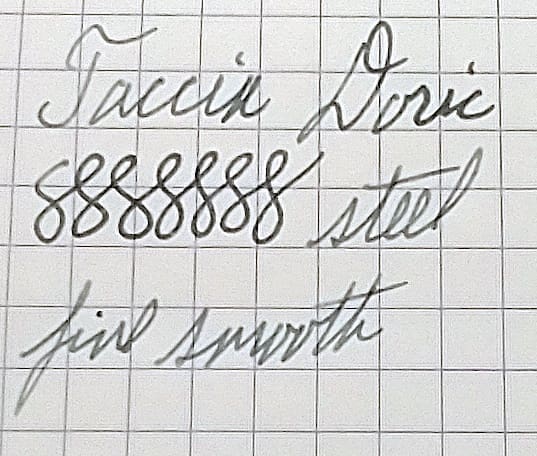 Taccia Doric
8888888 steel
fine smooth